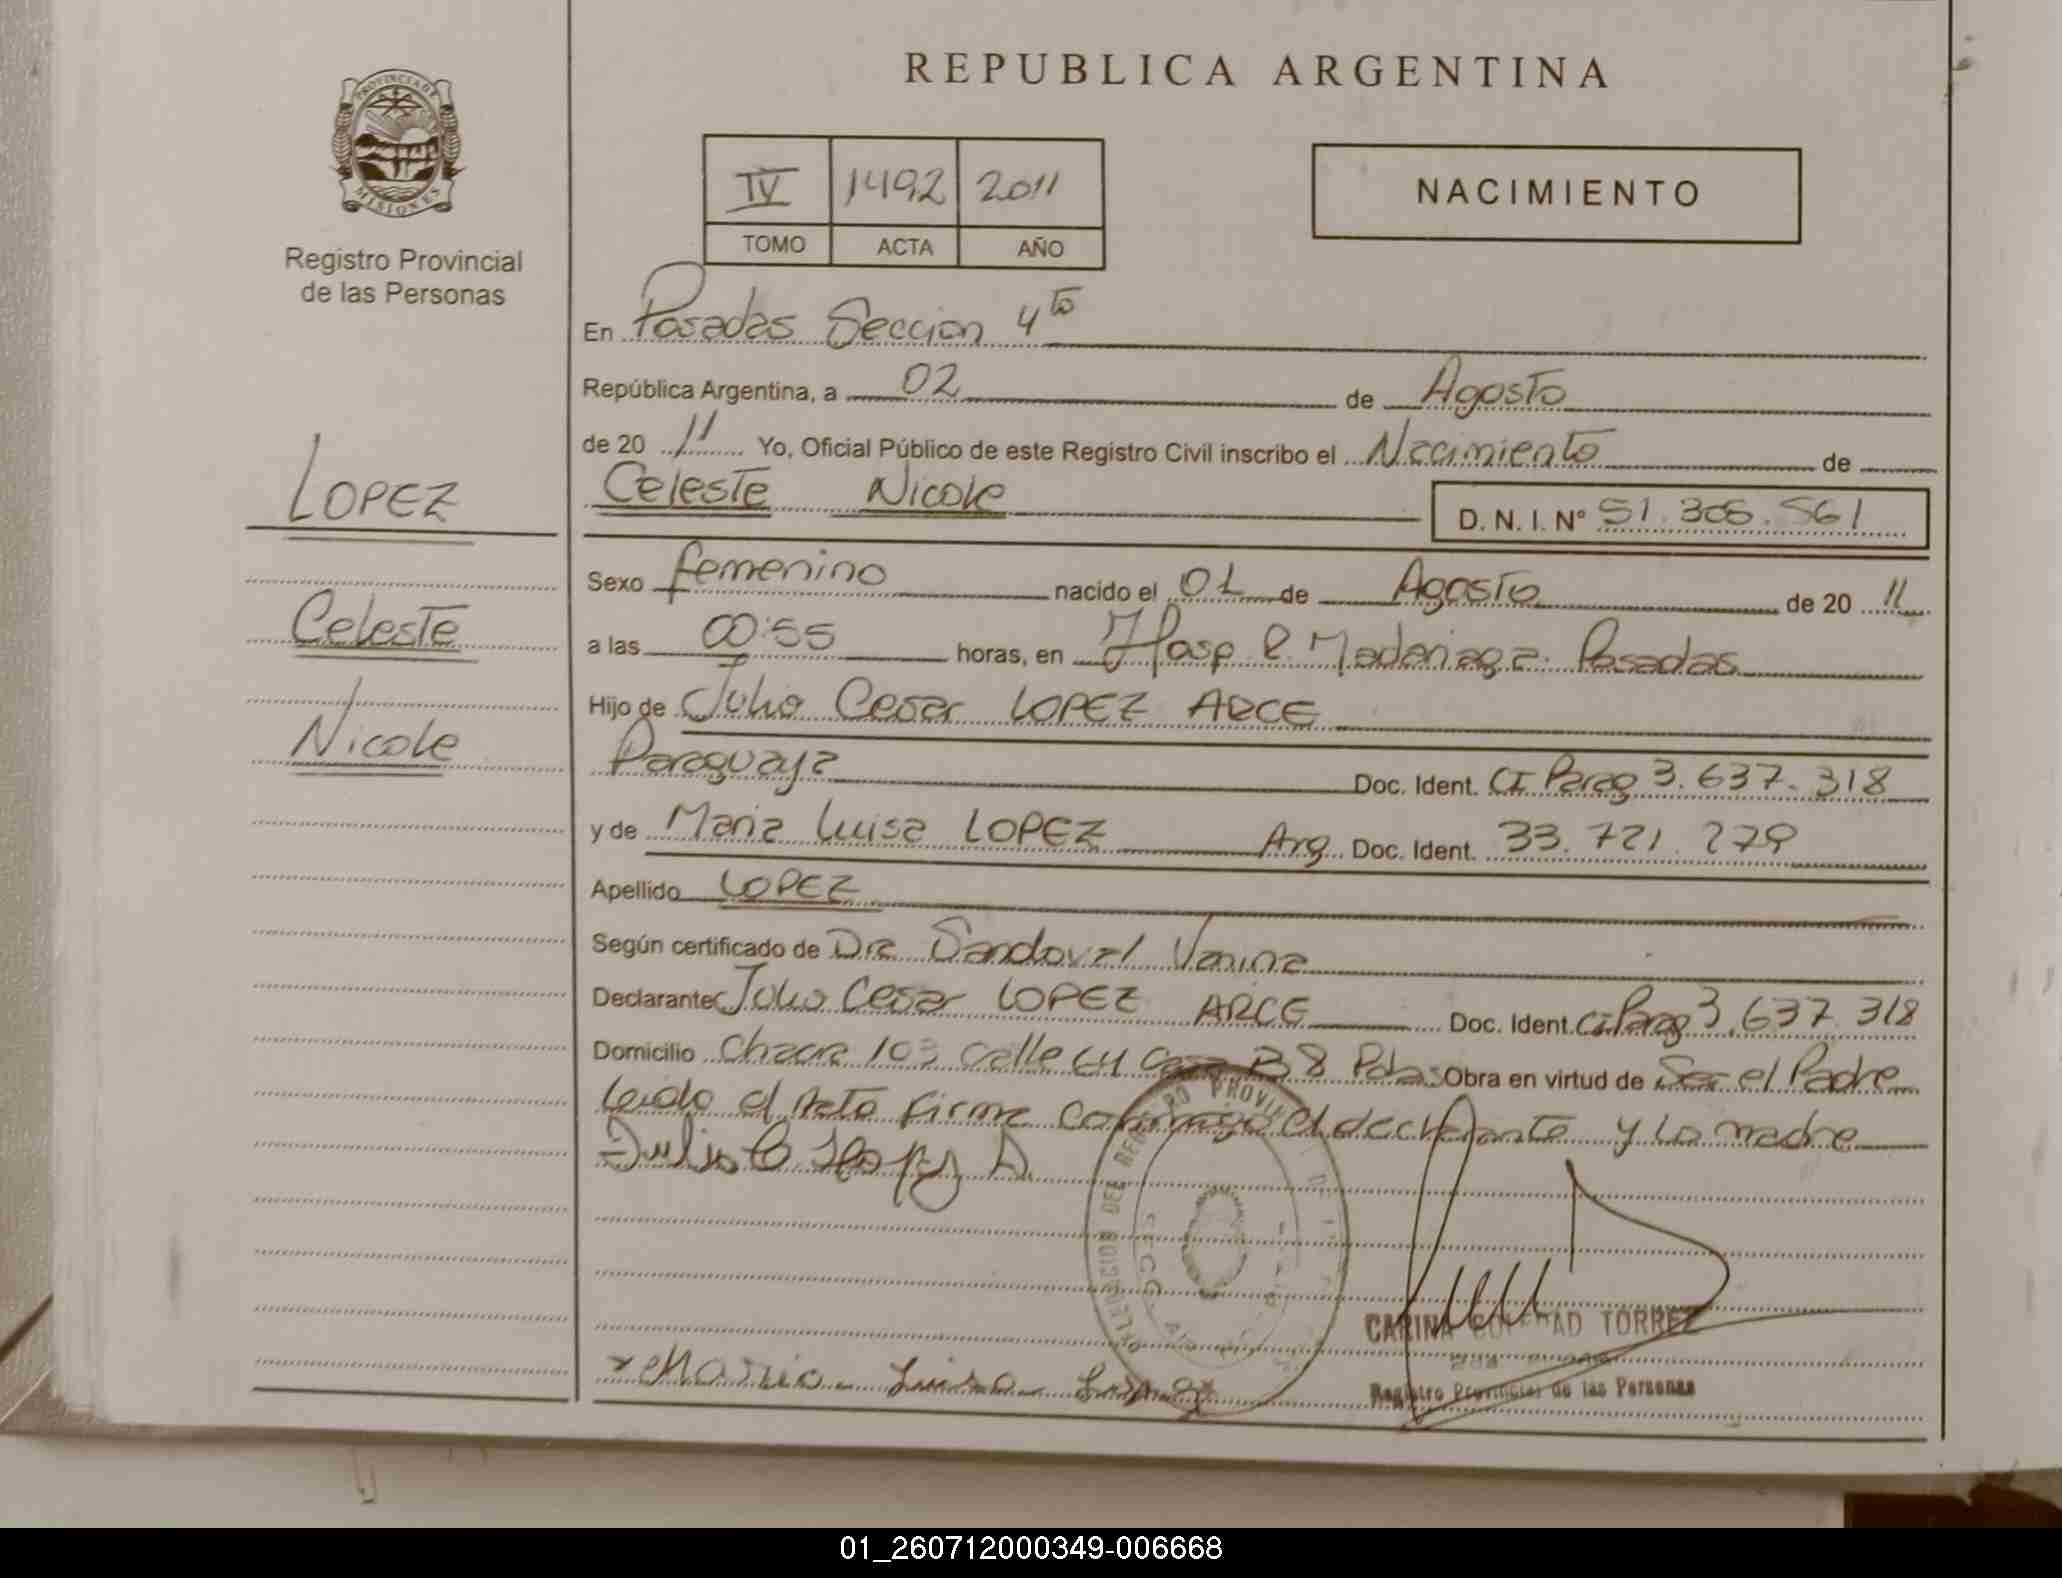 REPUBLICA ARGENTINA
PROVINCIA DE
MISIONES
Registro Provincial
de las Personas
IV 1492 2011
TOMO ACTA AÑO
NACIMIENTO
En Posadas Seccion 4ta
República Argentina, a 02 de Agosto
de 20 11 Yo, Oficial Público de este Registro Civil inscribo el Nacimiento de
Celeste Nicole D. N. I. N° 51.306.561
LOPEZ
Celeste
Nicole
Sexo femenino nacido el 01 de Agosto de 20 11
a las 00:55 horas, en Hosp. R. Madariaga. Posadas
Hijo de Julio Cesar LOPEZ ARCE
Paraguaya Doc. Ident. CI Parag 3.637.318
y de Maria Luisa LOPEZ Arg. Doc. Ident. 33.721.279
Apellido LOPEZ
Según certificado de Dra Sandoval Vanina
Declarante Julio Cesar LOPEZ ARCE Doc. Ident. CI Parag 3.637.318
Domicilio Chacra 103 Calle Casa B 8 Pdas Obra en virtud de Ser el Padre
Leido el Acta firma conmigo el declarante y la madre
Julio C Lopez A.
CARINA SOLEDAD TORREZ
Registro Provincial de las Personas
Maria Luisa Lopez
01_260712000349-006668